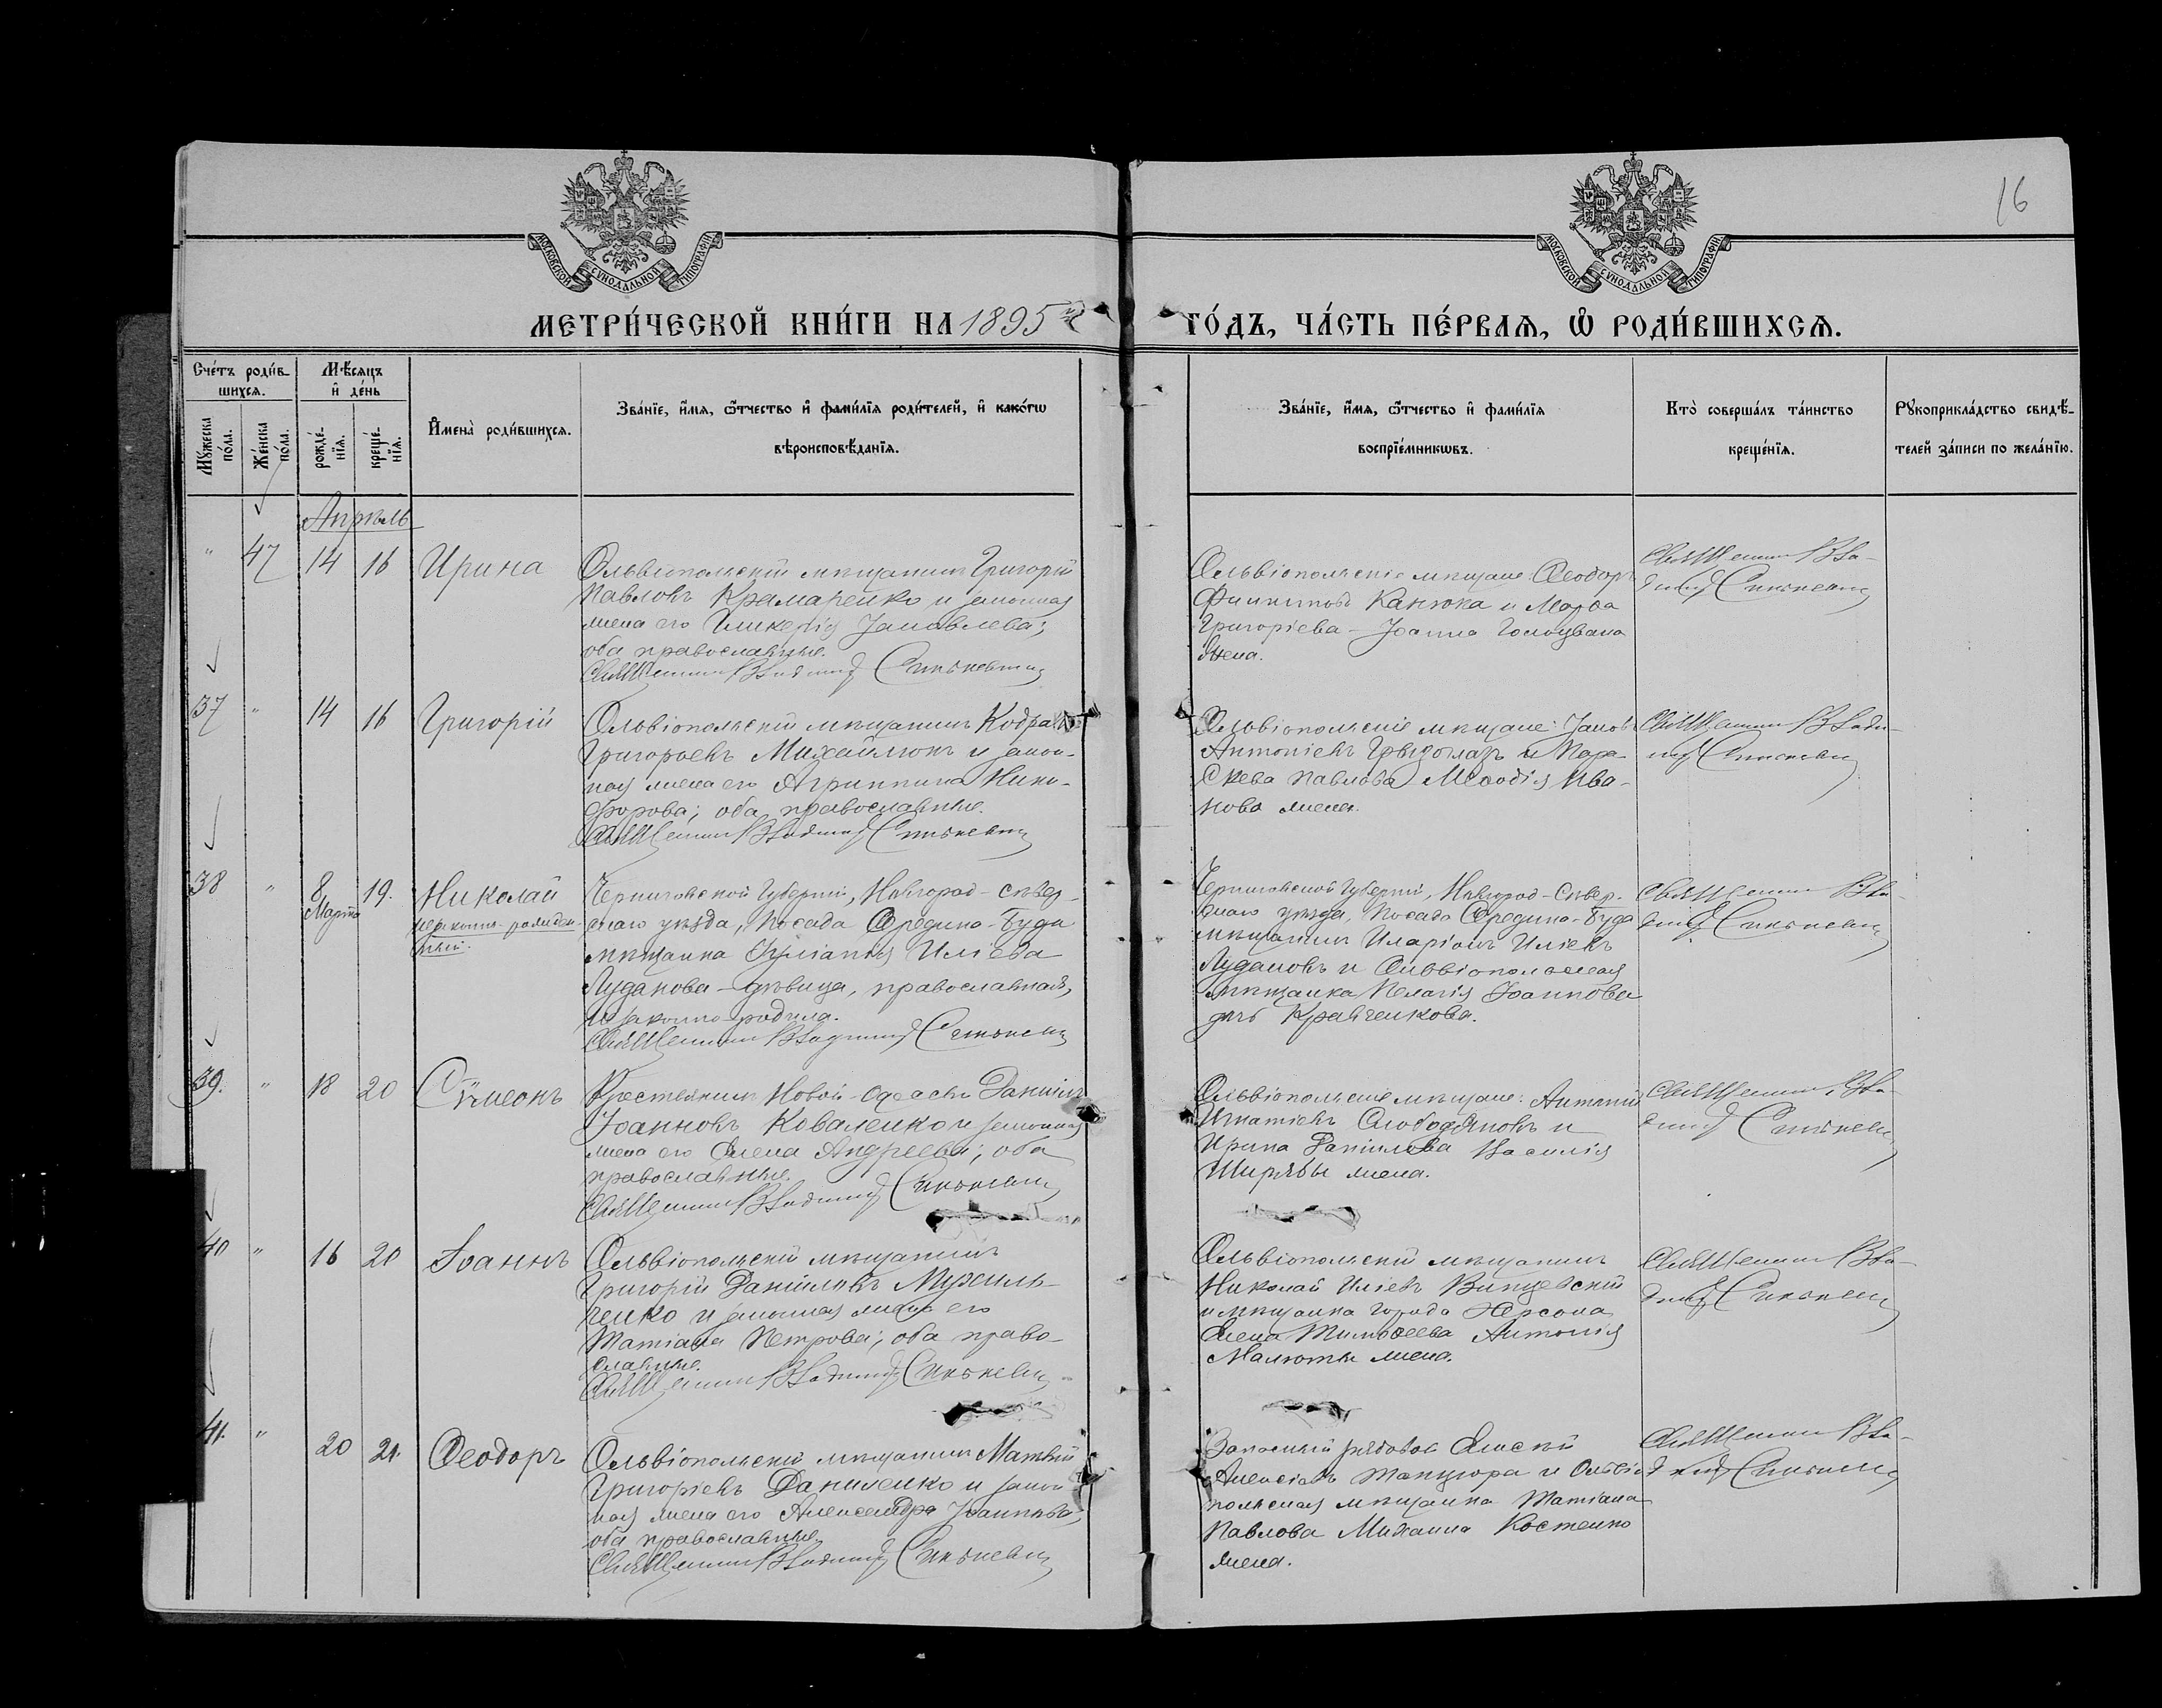 16
МОСКОВСКОЙ СѴНОДАЛЬНОЙ ТИПОГРАФІИ
МОСКОВСКОЙ СѴНОДАЛЬНОЙ ТИПОГРАФІИ
МЕТРИ́ЧЕСКОЙ КНИ́ГИ НА 1895й ГО́ДЪ, ЧА́СТЬ ПЕ́РВАѦ, Ѡ҆ РОДИ́ВШИХСѦ.
Сче́тъ роди́в-
шихсѧ.
Мꙋ́жеска по́ла.
Же́нска по́ла.
Мѣ́сяцъ
и҆ де́нь
рожде́-
нїѧ.
креще́-
нїѧ.
И҆мена̀ роди́вшихсѧ.
Зва́нїе, и҆́мѧ, ѻ҆́тчество и҆ фами́лїѧ роди́телей, и҆ како́гѡ
вѣроисповѣ́данїѧ.
Зва́нїе, и҆́мѧ, ѻ҆́тчество и҆ фами́лїѧ
воспрїе́мникѡвъ.
Кто̀ соверша́лъ та́инство
креще́нїѧ.
Рꙋкоприкла́дство свидѣ́-
телей за́писи по жела́нїю.
Апрѣль
" 47 14 16 Ирина
Ольвіопольскій мѣщанинъ Григорій
Павловъ Крамаренко и законная
жена его Гликерія Іаковлева;
оба православные.
Священникъ Владимір
Ольвіопольскіе мѣщане: Ѳеодоръ
Филипповъ Канюка и Марѳа
Григоріева - Іоанна
жена.
Священникъ Вла-
димір
37 " 14 16 Григорій
Ольвіопольскій мѣщанинъ Кодратъ
Григорьевъ Михайлюкъ и закон-
ная жена его Агриппина Ники-
форова; оба православные.
Священникъ Владимір
Ольвіопольскіе мѣщане: Іаковъ
Антоніевъ и Пара-
скева Павлова Меѳодія Ива-
нова жена.
Священникъ Влади-
мір
38 " 8 Марта 19. Николай
незаконно-рожден-
ный.
Черниговской Губерніи, Новгород-Сѣвер-
скаго уѣзда, Посада Середина-Буда
мѣщанка Іуліанія Иліева
Луданова - дѣвица, православная,
незаконно родила.
Священникъ Владимір
Черниговской Губерніи, Новгород-Сѣвер-
скаго уѣзда, Посада Середина-Буда
мѣщанинъ Иларіонъ Иліевъ
Лудановъ и Ольвіопольская
мѣщанка Пелагія Іоаннова
дочь Кравченкова.
Священникъ Вла-
димір
39. " 18 20 Сѵмеонъ
Крестьянинъ Новой-Одессы Даніилъ
Іоанновъ Коваленко и законная
жена его Елена Андреева; оба
православные.
Священникъ Владимір
Ольвіопольскіе мѣщане: Антоній
Игнатіевъ Слободяновъ и
Ирина Даніилова Василія
Ширяевы жена.
Священникъ Вла-
димір
40 " 16 20 Іоаннъ
Ольвіопольскій мѣщанинъ
Григорій Даніиловъ
и законная жена его
Татіана Петрова; оба право-
славные.
Священникъ Владимір
Ольвіопольскій мѣщанинъ
Николай Иліевъ
и мѣщанка города Херсона
Елена Тимоѳеева Антонія
Малюты жена.
Священникъ Вла-
димір
41. " 20 21. Ѳеодоръ
Ольвіопольскій мѣщанинъ Матвѣй
Григоріевъ Даниленко и закон
ная жена его Александра Іоаннова;
оба православные.
Священникъ Владимір
Запасный рядовой
Алексіевъ и Ольвіо
польская мѣщанка Татіана
Павлова Михаила Костенко
жена.
Священникъ Вла-
димір